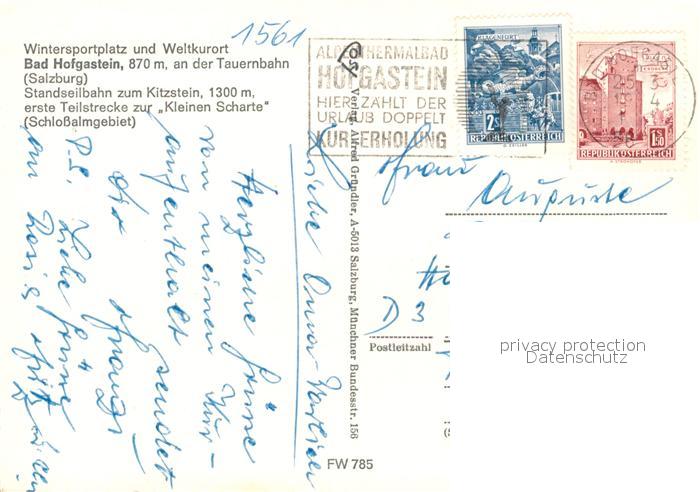 1561
Wintersportplatz und Weltkurort
Bad Hofgastein, 870 m, an der Tauernbahn
(Salzburg)
Standseilbahn zum Kitzstein, 1300 m,
erste Teilstrecke zur „Kleinen Scharte"
(Schloßalmgebiet)
ALPENTHERMALBAD
HOFGASTEIN
HIER ZÄHLT DER
URLAUB DOPPELT
KURERHOLUNG
KLAGENFURT
2S
REPUBLIK ÖSTERREICH
1.50
REPUBLIK ÖSTERREICH
Verlag Alfred Gründler, A-5013 Salzburg, Münchner Bundesstr. 156
Liebe Oma
Herzliche Grüße
von meinem Kur-
aufenthalt sendet
dir
Franzi
P.S. Liebe Grüße
an
Frau
Auguste
D 3
Postleitzahl
privacy protection
Datenschutz
FW 785